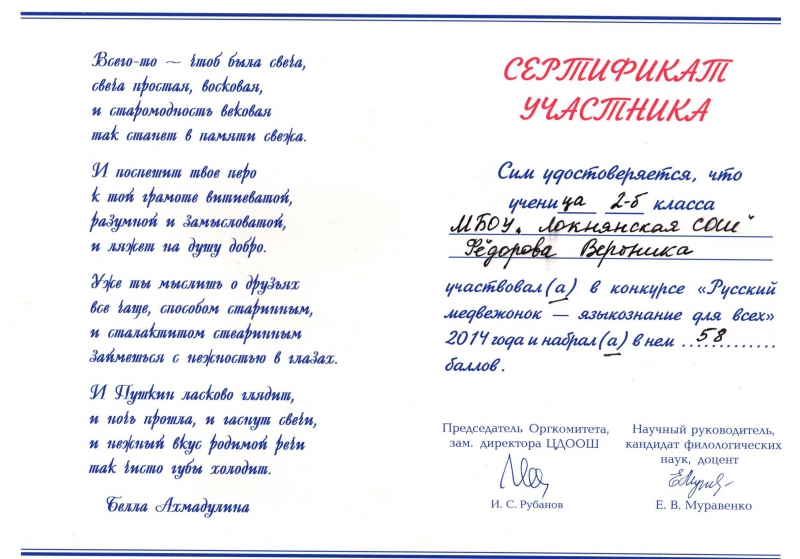 Всего-то — чтоб была свеча,
свеча простая, восковая,
и старомодность вековая
так станет в памяти свежа.
И поспешит твое перо
к той грамоте витиеватой,
разумной и замысловатой,
и ляжет на душу добро.
Уже ты мыслишь о друзьях
все чаще, способом старинным,
и сталактитом стеаринным
займешься с нежностью в глазах.
И Пушкин ласково глядит,
и ночь прошла, и гаснут свечи,
и нежный вкус родимой речи
так чисто губы холодит.
Белла Ахмадулина
СЕРТИФИКАТ
УЧАСТНИКА
Сим удостоверяется, что
учени ца 2-б класса
МБОУ „Локнянская СОШ"
Фёдорова Вероника
участвовал(а) в конкурсе «Русский
медвежонок — языкознание для всех»
2014 года и набрал(а) в нем ...58............
баллов.
Председатель Оргкомитета,
зам. директора ЦДООШ
И. С. Рубанов
Научный руководитель,
кандидат филологических
наук, доцент
Е. В. Муравенко